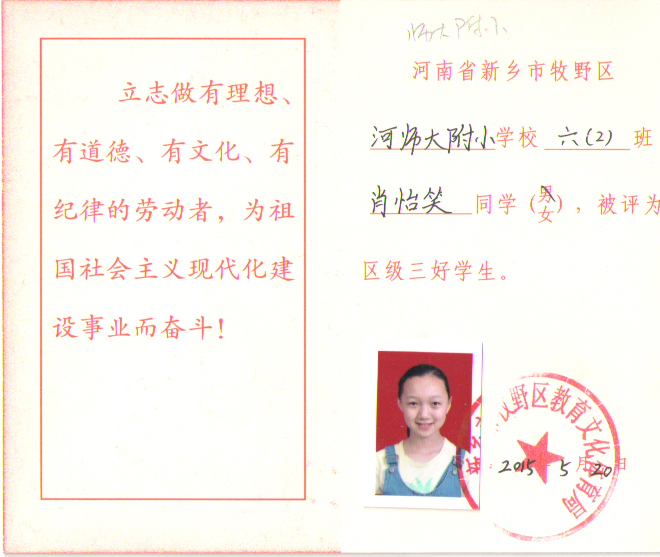 立志做有理想、
有道德、有文化、有
纪律的劳动者，为祖
国社会主义现代化建
设事业而奋斗！
师大附小
河南省新乡市牧野区
河师大附小学校 六(2) 班
肖怡笑 同学（男女），被评为
区级三好学生。
牧野区教育文化体育局
2015年5月20日